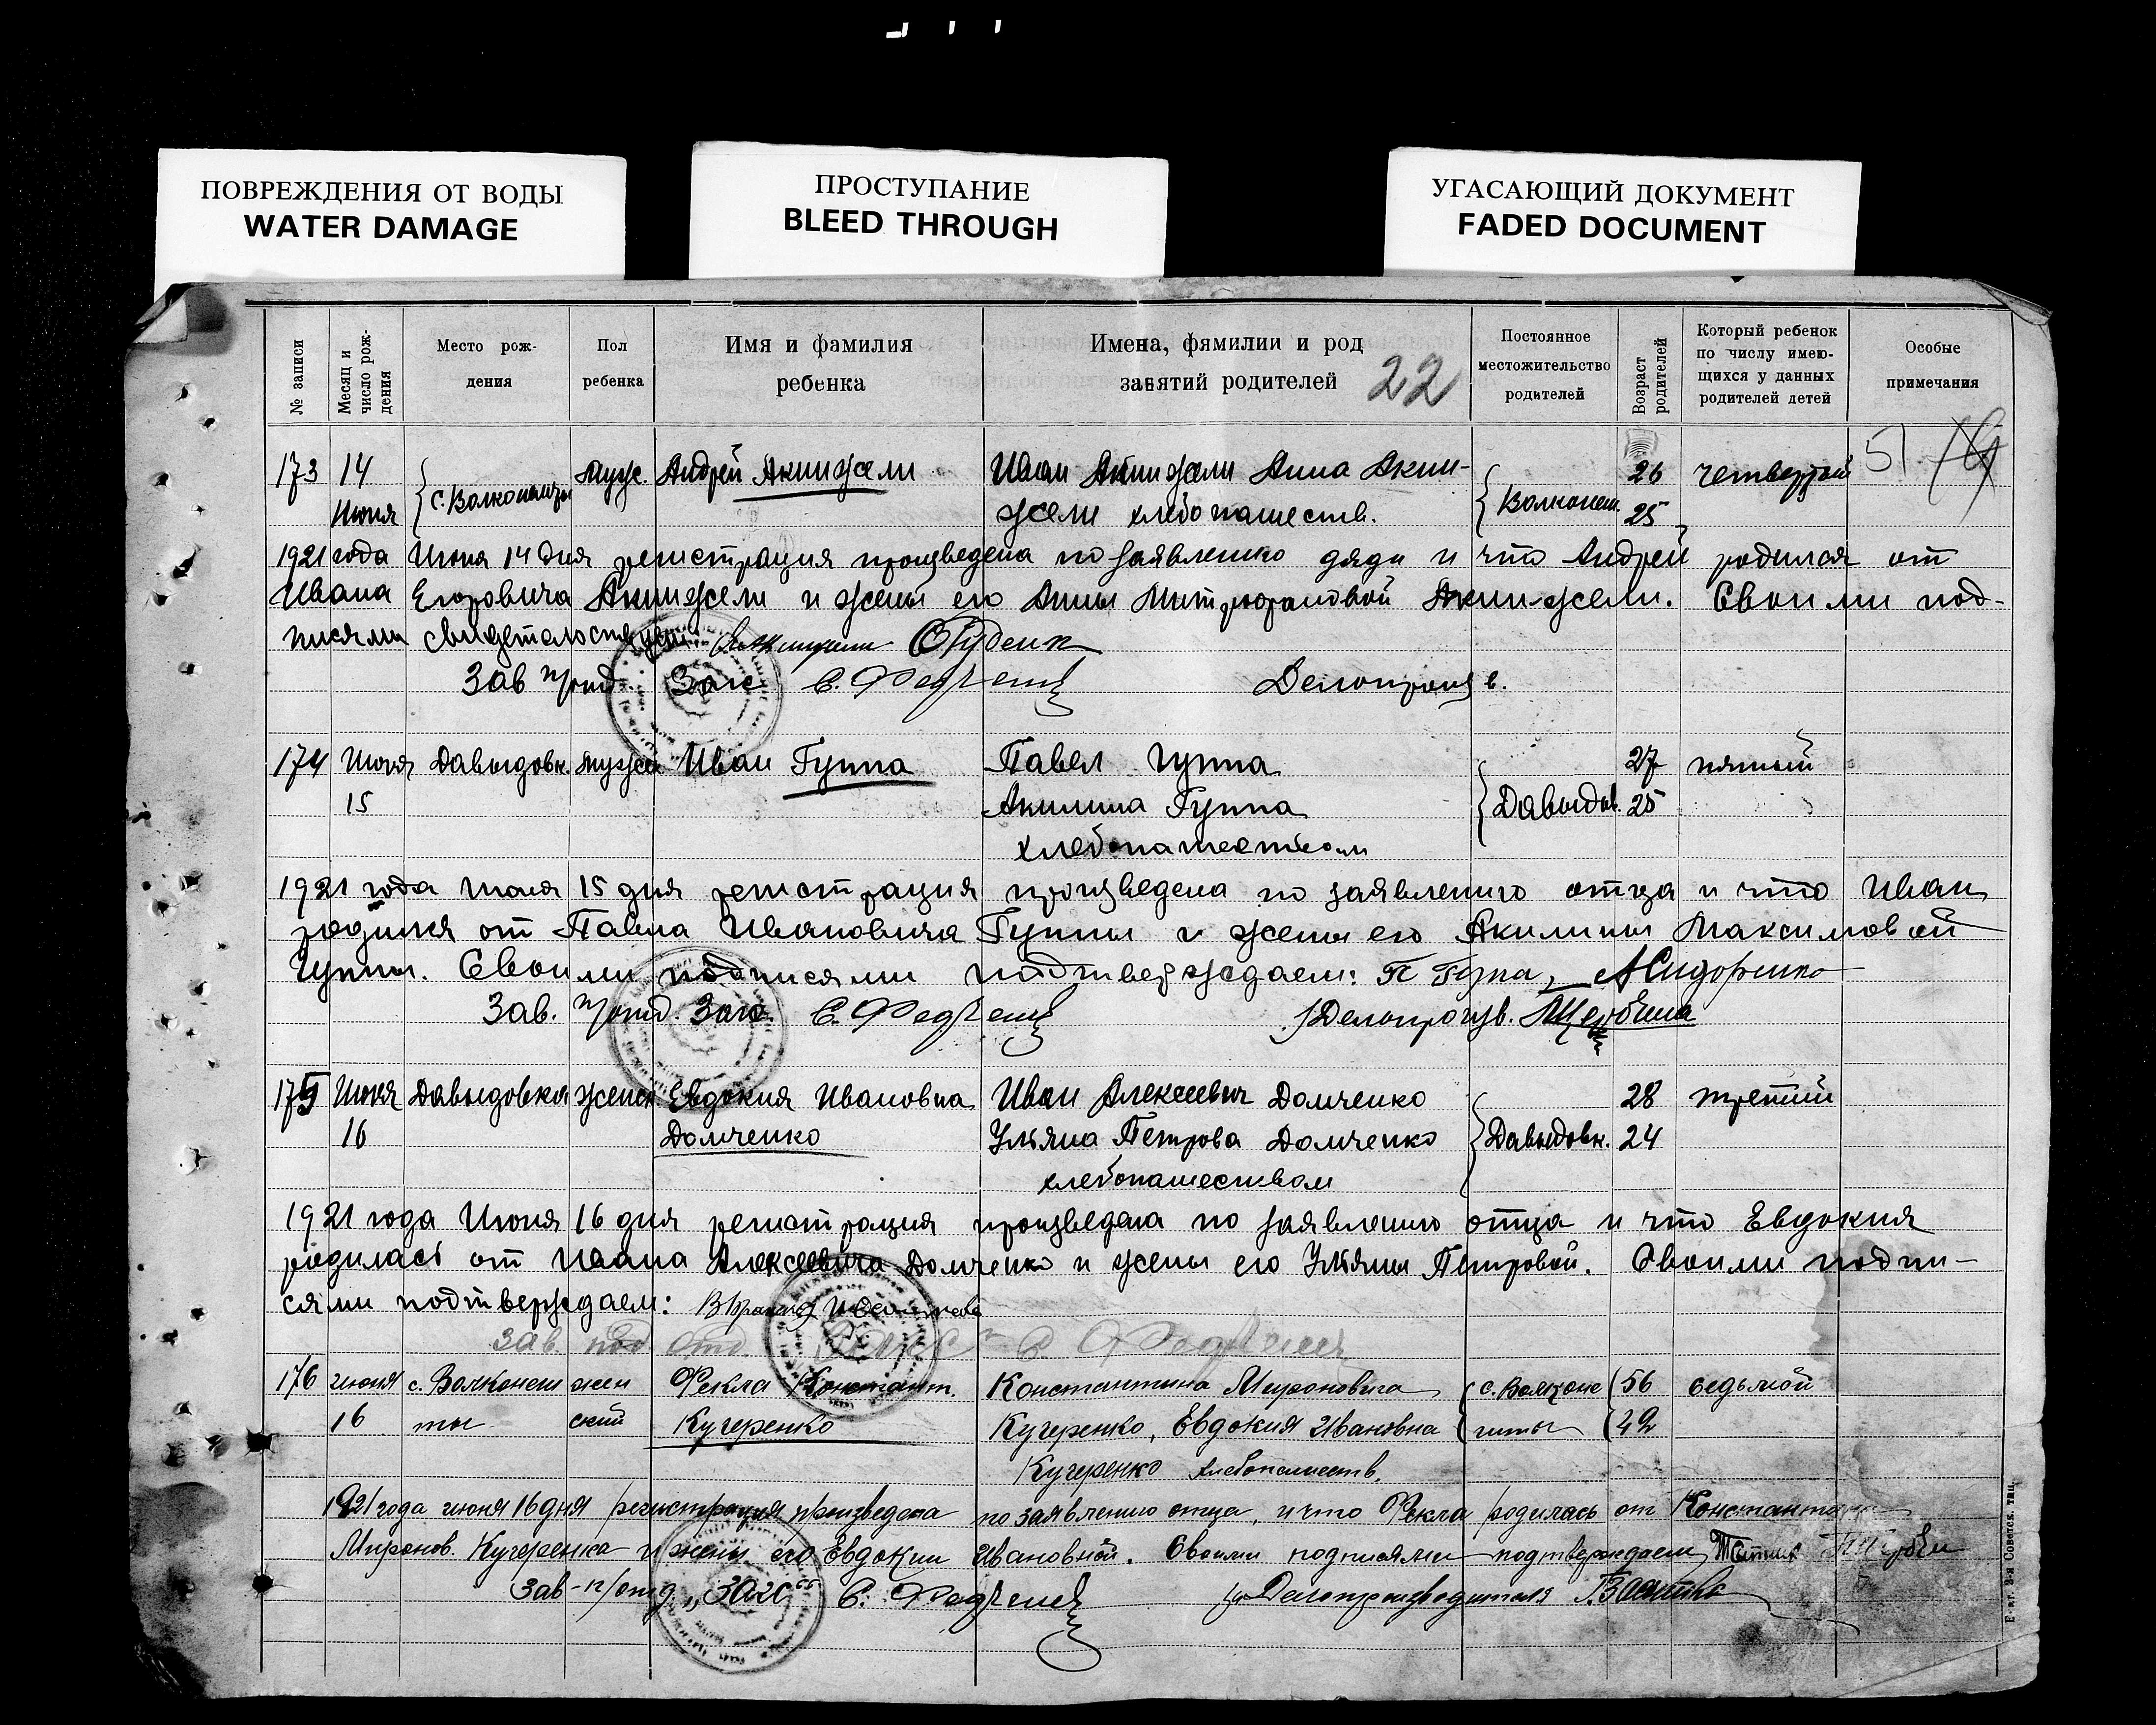 ПОВРЕЖДЕНИЯ ОТ ВОДЫ
WATER DAMAGE
ПРОСТУПАНИЕ
BLEED THROUGH
УГАСАЮЩИЙ ДОКУМЕНТ
FADED DOCUMENT
№ записи
Месяц и число рождения
Место рож-
дения
Пол
ребенка
Имя и фамилия
ребенка
Имена, фямилии и род
занятий родителей
22
Постоянное
местожительство
родителей
Возраст родителей
Который ребенок
по числу имею-
щихся у данных
родителей детей
Особые
примечания
51
173 14 с. Волконешты муж. Андрей Акинжели Иван Акинжели Анна Акин- Волконеш. 26 четвертый
Июня жели хлебопашеств. 25
1921 года Июня 14 дня регистрация произведена по заявлению дяди и что Андрей родился от
Ивана Егоровича Акинжели и жены его Анны Митрофановой Акинжели. Своими под-
писями свидетельствуем
Зав п/отд. Загс Делопроизв.
174 Июня Давыдовк. мужск Иван Гуппа Павел Гуппа 27 пятый
15 Акилина Гуппа Давыдов. 25
хлебопашеством
1921 года Июня 15 дня регистрация произведена по заявлению отца и что Иван
родился от Павла Ивановича Гуппы и жены его Акилины Максимовой
Гуппы. Своими подписями подтверждаем: П Гупа, А Сидоренко
Зав. п/отд. Загс. Делопроизв. Щербина
175 Июня Давыдовка женск Евдокия Ивановна Иван Алексеевич Домченко 28 третий
16 Домченко Ульяна Петрова Домченко Давыдовк. 24
хлебопашеством
1921 года Июня 16 дня регистрация произведена по заявлению отца и что Евдокия
родилась от Ивана Алексеевича Домченко и жены его Ульяны Петровой. Своими подпи-
сями подтверждаем:
Зав. под. отд. Загс
176 июня с. Волконеш жен Фекла Констант. Константина Мироновича с. Волконе 56 седьмой
16 ты ский Кучеренко Кучеренко, Евдокия Ивановна шты 42
Кучеренко хлебопашеств.
1921 года июня 16 дня регистрация произведена по заявлению отца, и что Фекла родилась от Константина
Миронов. Кучеренка и жены его Евдокии Ивановной. Своими подписями подтверждаем
Зав-п/отд „Загс" Делопроизводителя